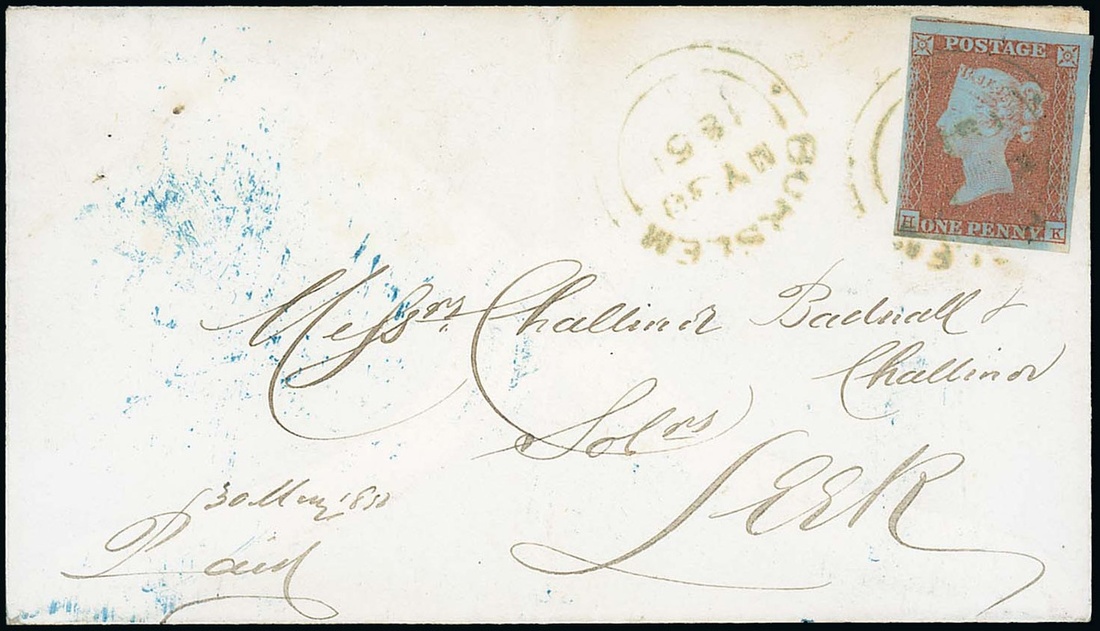 POSTAGE
ONE PENNY
H K
BURSLEM
MY 30
185
LEM
Messrs Challinor Badnall &
Challinor
Solrs
Leek
30 May 185
Paid